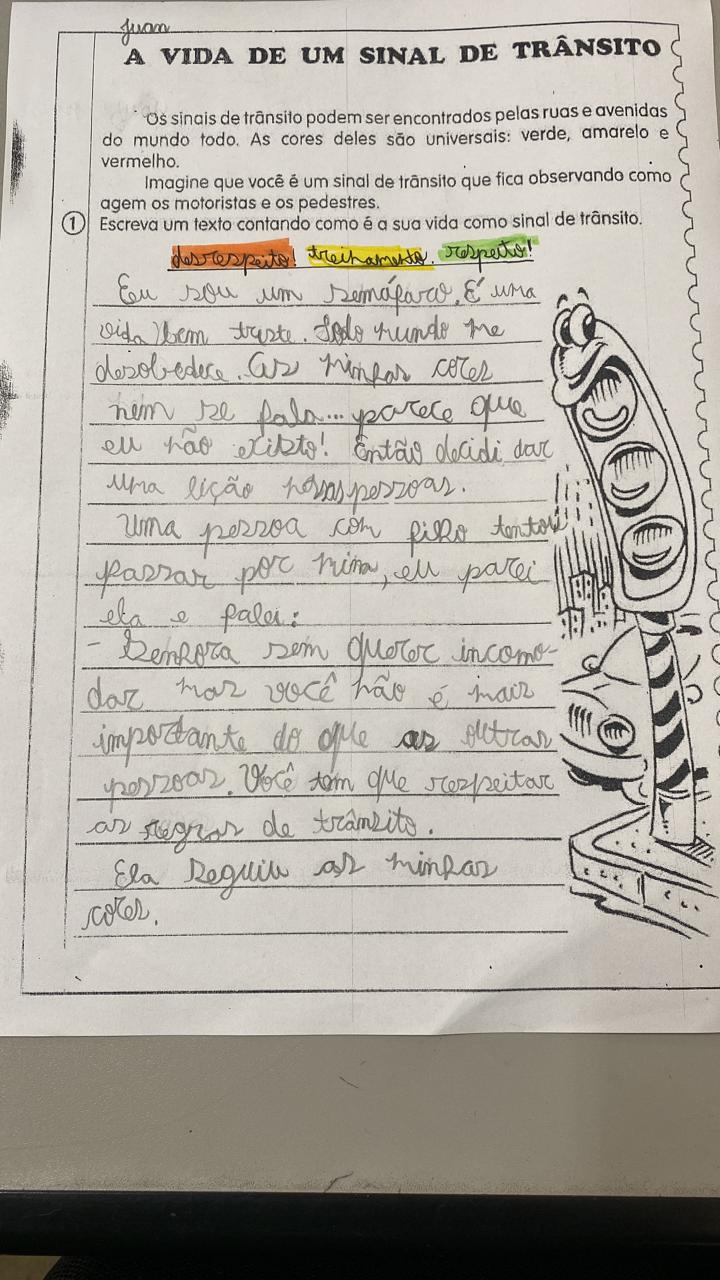 Juan
A VIDA DE UM SINAL DE TRÂNSITO
Os sinais de trânsito podem ser encontrados pelas ruas e avenidas
do mundo todo. As cores deles são universais: verde, amarelo e
vermelho.
Imagine que você é um sinal de trânsito que fica observando como
agem os motoristas e os pedestres.
1 Escreva um texto contando como é a sua vida como sinal de trânsito.
desrespeito! treinamento. respeito!
Eu sou um semáforo. É uma
vida bem triste. Todo mundo me
desobedece. As minhas cores
nem se fala... parece que
eu não existo! Então decidi dar
uma lição nessas pessoas.
Uma pessoa com filho tentou
passar por mim, eu parei
ela e falei:
- Senhora sem querer incomo-
dar mas você não é mais
importante do que as outras
pessoas. Você tem que respeitar
as regras de trânsito.
Ela seguiu as minhas
cores.